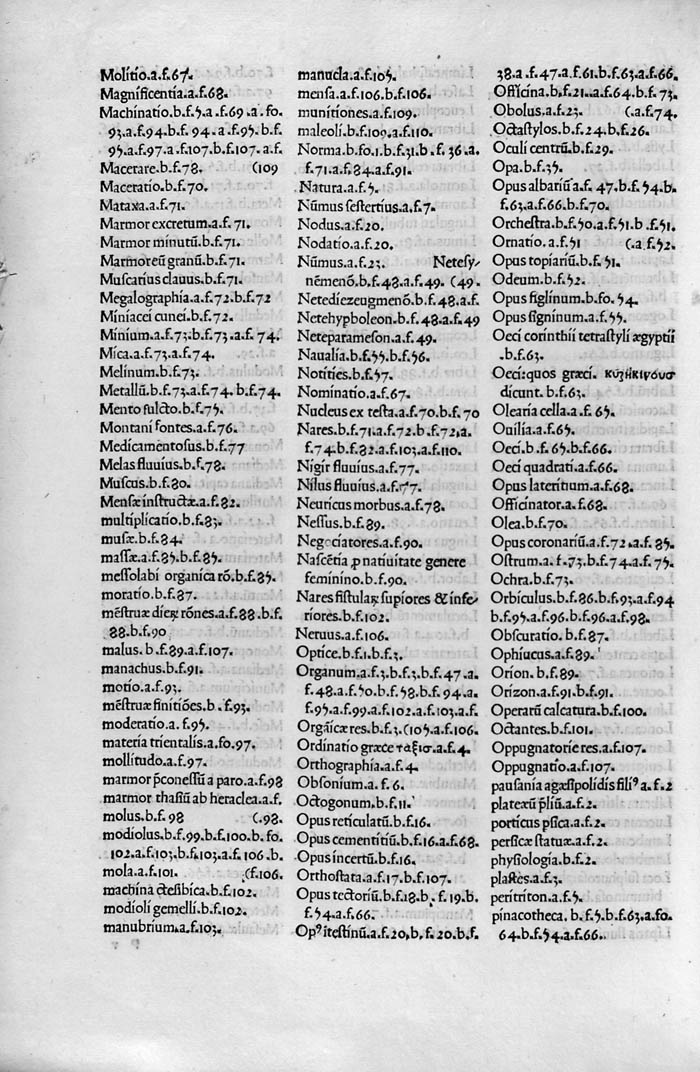 Molitio.a.f.67.
Magnificentia.a.f.68.
Machinatio.b.f.5.a.f.69.a.fo.
93.a.f.94.b.f.94.a.f.95.b.f.
95.a.f.97.a.f.107.b.f.107.a.f.
Macerare.b.f.78. (109
Maceratio.b.f.70.
Mataxa.a.f.71.
Marmor excretum.a.f.71.
Marmor minutū.b.f.71.
Marmoreū granū.b.f.71.
Muscarius clauus.b.f.71.
Megalographia.a.f.72.b.f.72
Miniacci cunei.b.f.72.
Minium.a.f.73.b.f.73.a.f.74.
Mica.a.f.73.a.f.74.
Melinum.b.f.73.
Metallū.b.f.73.a.f.74.b.f.74.
Mento sulcto.b.f.75.
Montani fontes.a.f.76.
Medicamentosus.b.f.77
Melas fluuius.b.f.78.
Muscus.b.f.80.
Mensæ instructæ.a.f.82.
multiplicatio.b.f.83.
musæ.b.f.84.
massæ.a.f.85.b.f.85.
messolabi organica rō.b.f.85.
moratio.b.f.87.
mēstruæ dieꝝ rōnes.a.f.88.b.f.
88.b.f.90
malus.b.f.89.a.f.107.
manachus.b.f.91.
motio.a.f.93.
mēstruæ finitiões.b.f.93.
moderatio.a.f.95.
materia trientalis.a.fo.97.
mollitudo.a.f.97.
marmor ꝓconessū a paro.a.f.98
marmor thasiū ab heraclea.a.f.
molus.b.f.98 (.98.
modiolus.b.f.99.b.f.100.b.fo.
102.a.f.103.b.f.103.a.f.106.b.
mola.a.f.101. (f.106.
machina ctesibica.b.f.102.
modioli gemelli.b.f.102.
manubrium.a.f.103.
manucla.a.f.105.
mensa.a.f.106.b.f.106.
munitiones.a.f.109.
maleoli.b.f.109.a.f.110.
Norma.b.fo.1.b.f.31.b.f.36.a.
f.71.a.f.84.a.f.91.
Natura.a.f.5.
Nūmus sestertius.a.f.7.
Nodus.a.f.20.
Nodatio.a.f.20.
Nūmus.a.f.23. Netesy⸗
nēmenō.b.f.48.a.f.49. (49.
Netediezeugmenō.b.f.48.a.f.
Netehypboleon.b.f.48.a.f.49
Neteparameson.a.f.49.
Naualia.b.f.55.b.f.56.
Notities.b.f.57.
Nominatio.a.f.67.
Nucleus ex testa.a.f.70.b.f.70
Nares.b.f.71.a.f.72.b.f.72.a.
f.74.b.f.82.a.f.103.a.f.110.
Nigir fluuius.a.f.77.
Nilus fluuius.a.f.77.
Neuricus morbus.a.f.78.
Nessus.b.f.89.
Negociatores.a.f.90.
Nascētia ꝓ natiuitate genere
feminino.b.f.90.
Nares fistulaꝝ supiores & infe⸗
riores.b.f.102.
Neruus.a.f.106.
Optice.b.f.1.b.f.3.
Organum.a.f.3.b.f.3.b.f.47.a.
f.48.a.f.50.b.f.58.b.f.94.a.
f.95.a.f.99.a.f.102.a.f.103.a.f.
Orgāicæ res.b.f.3.(105.a.f.106.
Ordinatio græce ταξισ.a.f.4.
Orthographia.a.f.4.
Obsonium.a.f.6.
Octogonum.b.f.11.
Opus reticulatū.b.f.16.
Opus cementitiū.b.f.16.a.f.68.
Opus incertū.b.f.16.
Orthostata.a.f.17.b.f.107.
Opus tectoriū.b.f.18.b.f.19.b.
f.54.a.f.66.
Opꝰ itestinū.a.f.20.b.f.20.b.f.
38.a.f.47.a.f.61.b.f.63.a.f.66.
Officina.b.f.21.a.f.64.b.f.73.
Obolus.a.f.23. (.a.f.74.
Octastylos.b.f.24.b.f.26.
Oculi centrū.b.f.29.
Opa.b.f.35.
Opus albariū.a.f.47.b.f.54.b.
f.63.a.f.66.b.f.70.
Orchestra.b.f.50.a.f.51.b.f.51.
Ornatio.a.f.51 (.a f.52.
Opus topiariū.b.f.51.
Odeum.b.f.52.
Opus figlinum.b.fo.54.
Opus signinum.a.f.55.
Oeci corinthii tetrastyli ægyptii
.b.f.63.
Oeci:quos græci. κυζηκινουσ
dicunt.b.f.63.
Olearia cella.a.f.65.
Ouilia.a.f.65.
Oeci.b.f.65.b.f.66.
Oeci quadrati.a.f.66.
Opus lateritium.a.f.68.
Officinator.a.f.68.
Olea.b.f.70.
Opus coronariū.a.f.72.a.f.85.
Ostrum.a.f.73.b.f.74.a.f.75.
Ochra.b.f.73.
Orbiculus.b.f.86.b.f.93.a.f.94
b.f.95.a.f.96.b.f.96.a.f.98.
Obscuratio.b.f.87.
Ophiucus.a.f.89.
Orion.b.f.89.
Orizon.a.f.91.b.f.91.
Operarū calcatura.b.f.100.
Octantes.b.f.101.
Oppugnatorie res.a.f.107.
Oppugnatio.a.f.107.
pausania agæsipolidis filiꝰ a.f.2
platexū ꝓliū.a.f.2.
porticus psica.a.f.2.
persicæ statuæ.a.f.2.
physiologia.b.f.2.
plastes.a.f.3.
peritriton.a.f.5.
pinacotheca.b.f.5.b.f.63.a.fo.
64.b.f.54.a.f.66.